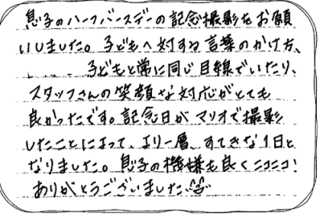 息子のハーフバースデーの記念撮影をお願
いしました。子どもへ対する言葉のかけ方、
子どもと常に同じ目線でいたり、
スタッフさんの笑顔な対応がとても
良かったです。記念日がマリオで撮影
したことによって、より一層、すてきな1日と
なりました。息子の機嫌も良くニコニコ!
ありがとうございました